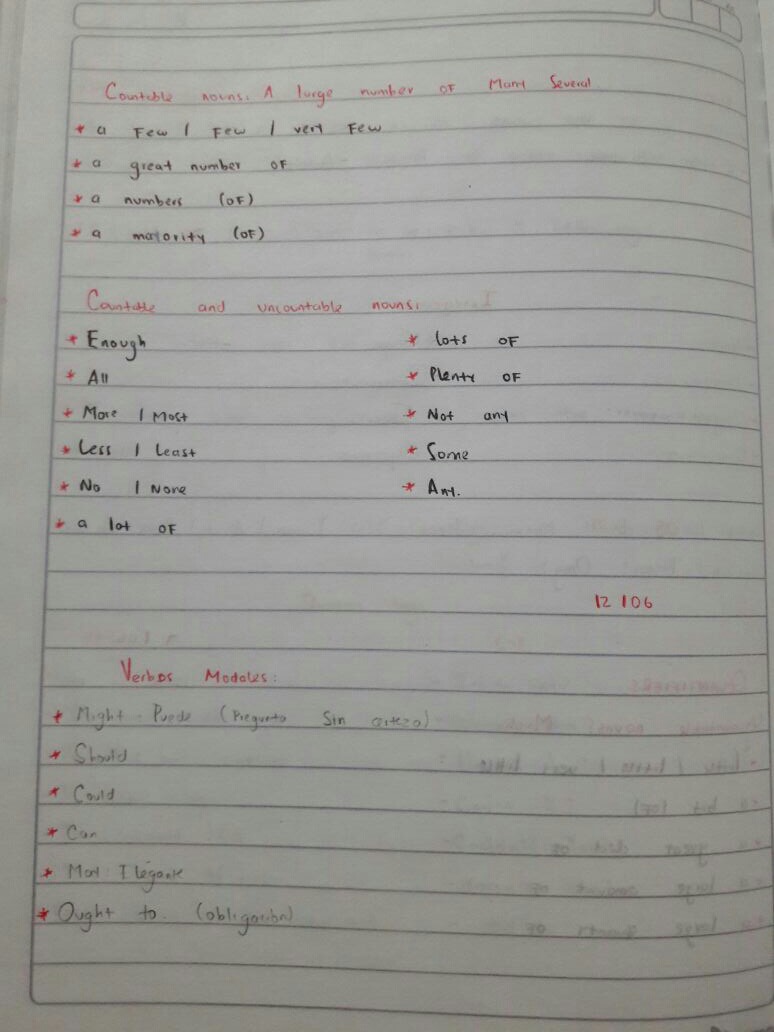 Countable nouns: A large number of Many Several
* a Few / Few / very Few
* a great number OF
* a numbers (OF)
* a majority (OF)
Countable and uncountable nouns:
* Enough
* All
* More / Most
* Less / Least
* No / None
* a lot OF
* lots OF
* Plenty OF
* Not any
* Some
* Any.
12 / 06
Verbos Modales:
* Might: Puede (Pregunta Sin certeza)
* Should
* Could
* Can
* May: Elegante
* Ought to. (obligación)